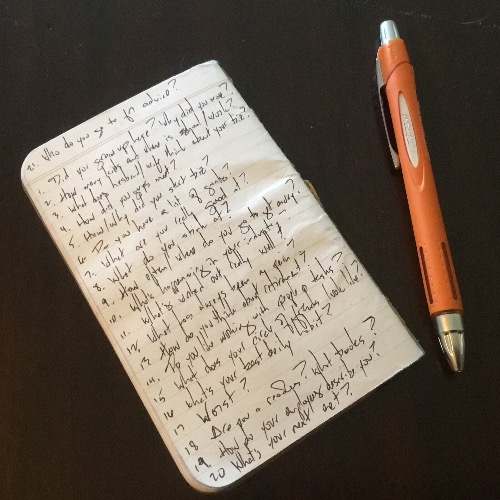 21. Who do you go to for advice?
1. Did you grow up here? Why did you move?
2. How many kids and where is school/work?
3. What does husband/wife think about your biz?
4. How did you guys meet?
5. How/why did you start biz?
6. Do you have a lot of
7. What are you really good at?
8. What do you suck at?
9. How often/where do you go to get away?
10. Who's happening in your
11. What's worked out really well?
12. What has always been a given?
13. How do you think about retirement?
14. Do you like working with people
15. What does your circle of friends look like?
16. What's your best daily habit?
17. Worst?
18. Are you a reader? What
19. How do your employees describe you?
20. What's your next act?